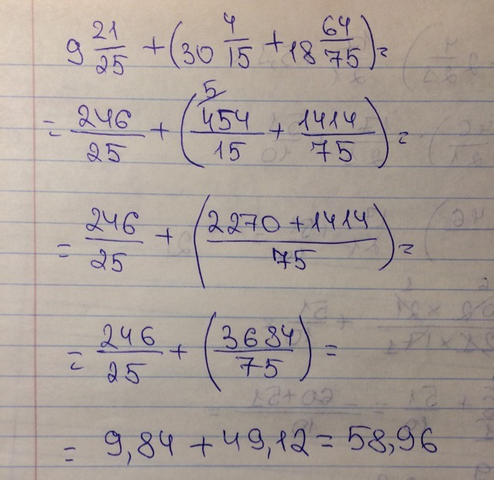 9 21/25 + (30 4/15 + 18 64/75) =
= 246/25 + (454/15 (5 + 1414/75) =
= 246/25 + (2270 + 1414/75) =
= 246/25 + (3684/75) =
= 9,84 + 49,12 = 58,96